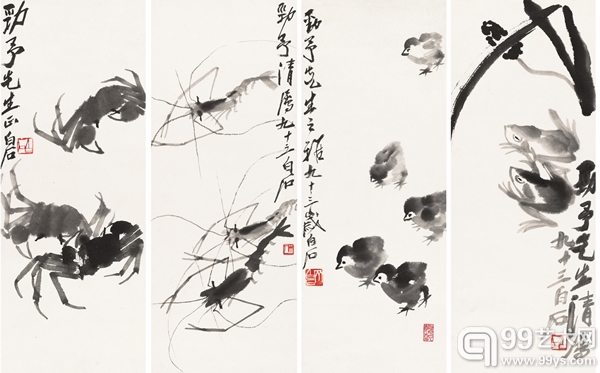 勁予先生正白石
勁予清屬九十三白石
勁予先生之雅九十三歲白石
勁予先生清屬
九十三白石
99艺术网
www.99ys.com